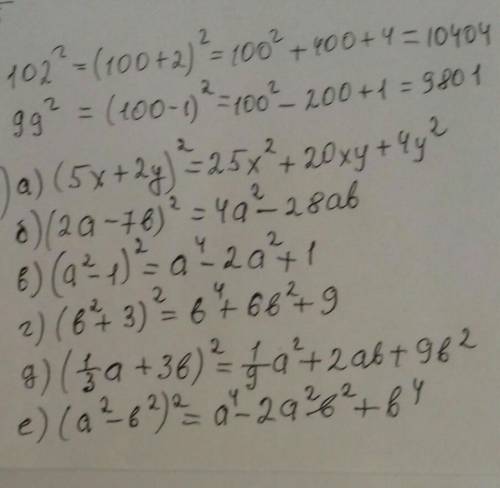 102² = (100+2)² = 100² + 400 + 4 = 10404
99² = (100-1)² = 100² - 200 + 1 = 9801
) а) (5x+2y)² = 25x² + 20xy + 4y²
б) (2a-7b)² = 4a² - 28ab
в) (a²-1)² = a⁴ - 2a² + 1
г) (b²+3)² = b⁴ + 6b² + 9
д) (1/3a + 3b)² = 1/9a² + 2ab + 9b²
е) (a²-b²)² = a⁴ - 2a²b² + b⁴